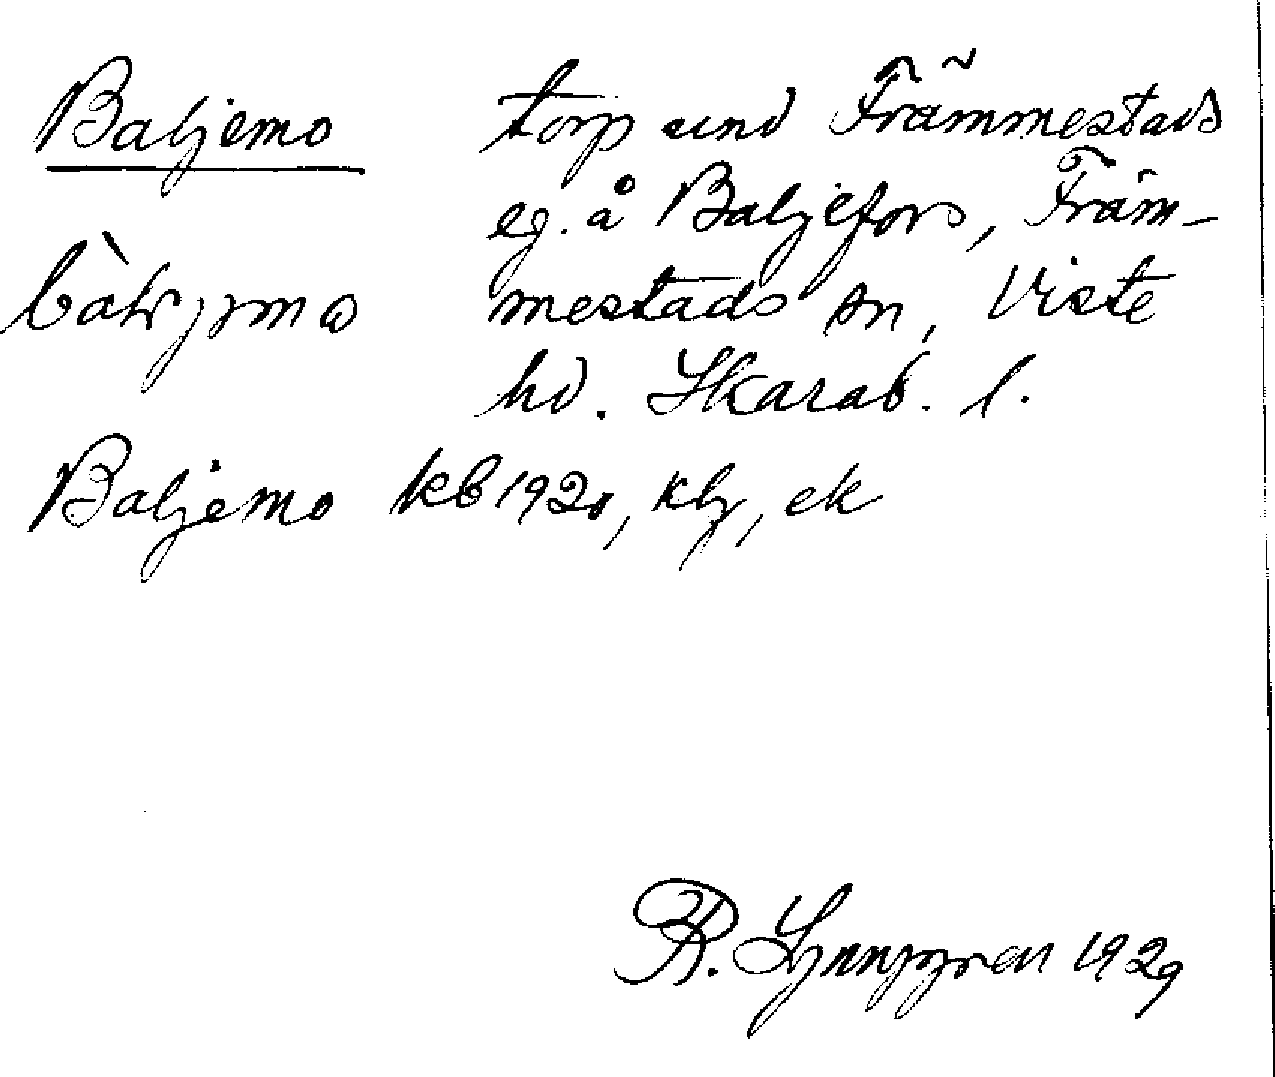 Baljemo torp und Främmestads
eg. å Baljefors, Främ-
mestads sn, Viste
hd. Skarab. l.
Baljemo kb 1920, klj, ek
R. Ljunggren 1929